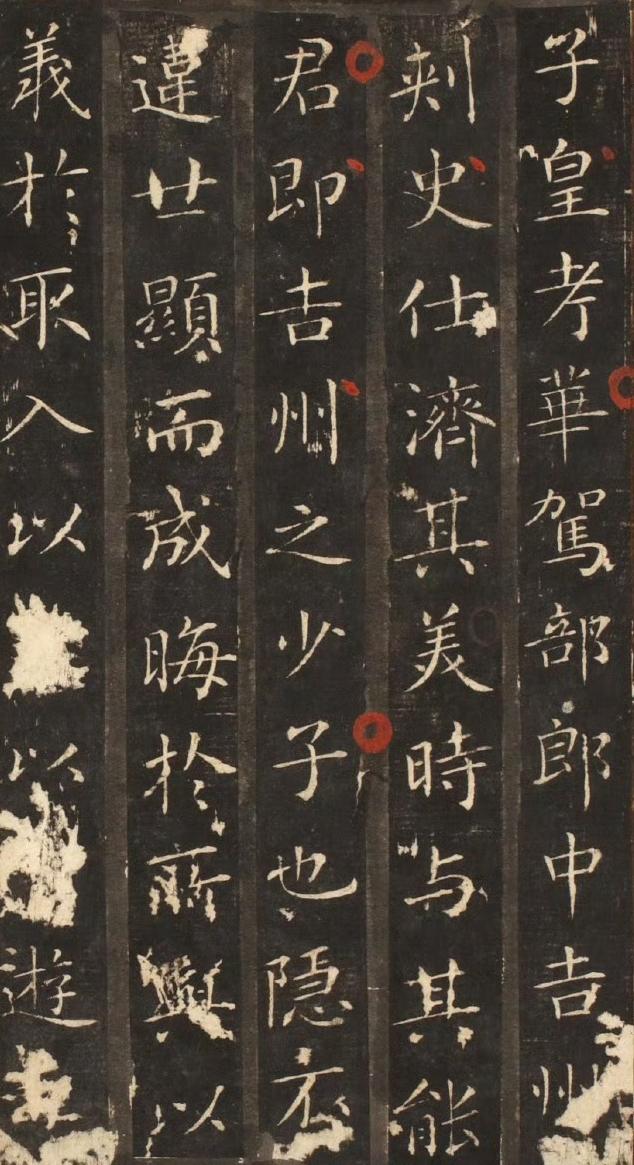 子皇考華駕部郎中吉州
刾史仕濟其美時与其能
君即吉州之少子也隐不
違世顯而成晦於所與以
義於取入以以遊